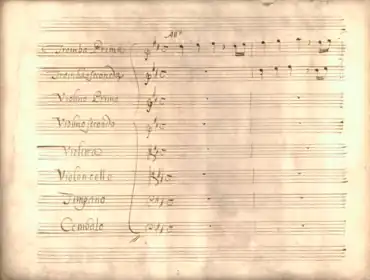 All°
Tromba Prima
Tromba Seconda
Violino Primo
Violino Secondo
Violetta
Violoncello
Timpano
Cembalo